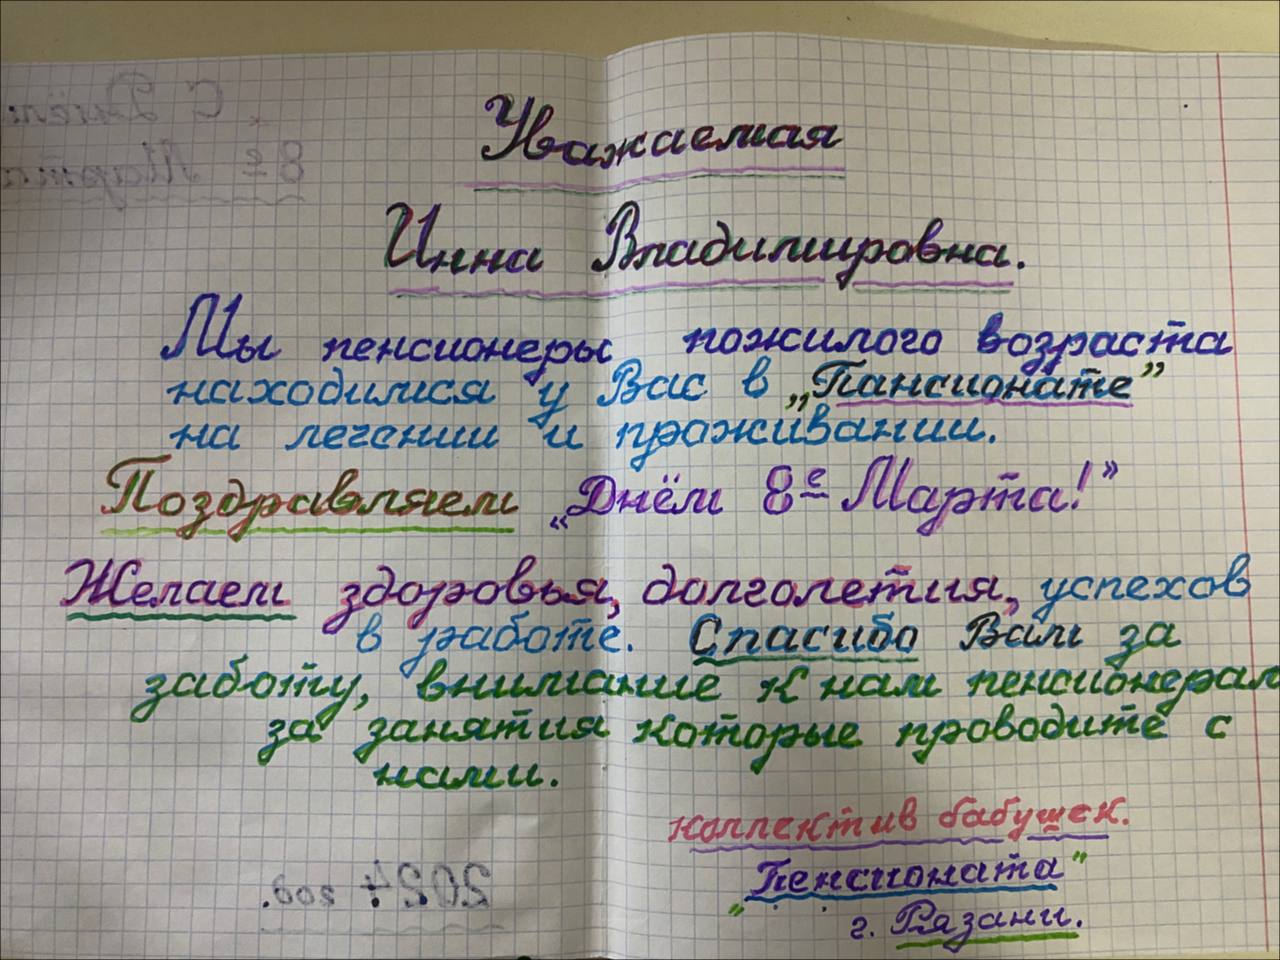 Уважаемая
Инна Владимировна.
Мы пенсионеры пожилого возраста
находимся у Вас в „Пансионате”
на лечении и проживании.
Поздравляем „Днём 8е Марта!”
Желаем здоровья, долголетия, успехов
в работе. Спасибо Вам за
заботу, внимание к нам пенсионерам
за занятия которые проводите с
нами.
коллектив бабушек.
„Пенсионата”
г. Рязани.
С Днём
8е Марта
2024 год.